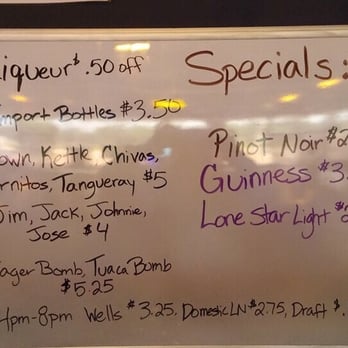 iqueur $.50 off
Specials:
mport Bottles $3.50
own, Kettle, Chivas,
rnitos, Tangueray $5
Jim, Jack, Johnnie,
Jose $4
ager Bomb, Tuaca Bomb
$5.25
4pm-8pm Wells $3.25. Domestic LN $2.75, Draft $.
Pinot Noir $2
Guinness $3.
Lone Star Light $